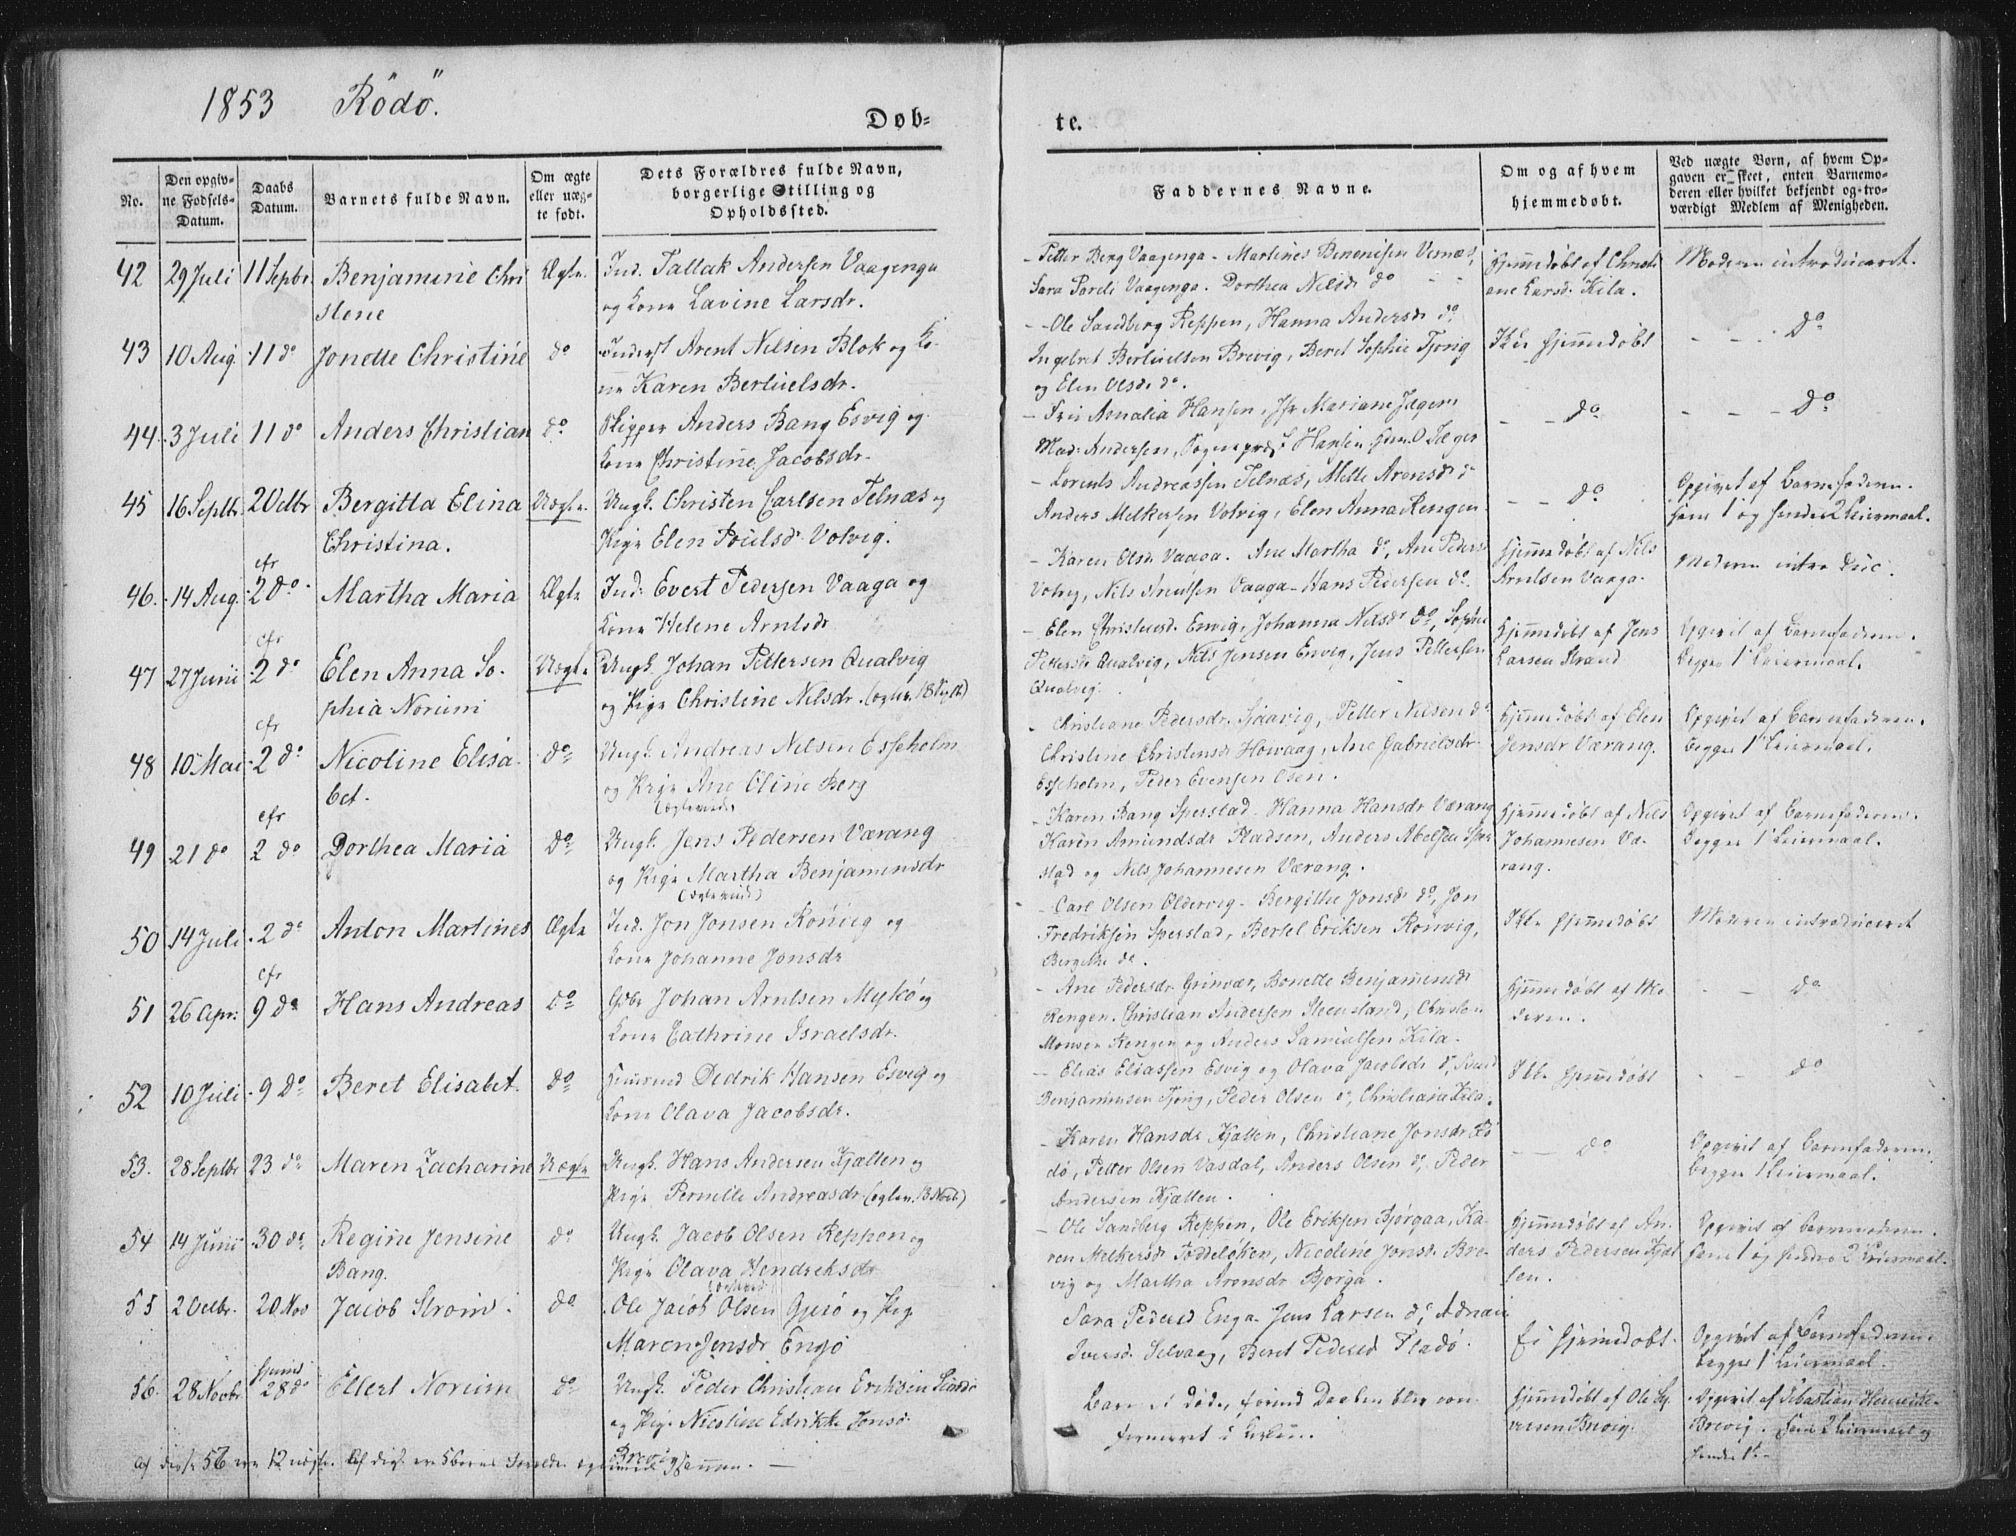 1853 Rödö.
Døb=
te.
No.
Den opgiv-
ne Fødsels-
Datum.
Daabs
Datum.
Barnets fulde Navn.
Om ægte
eller uæg-
te født.
Dets Forældres fulde Navn,
borgerlige Stilling og
Opholdssted.
Faddernes Navne.
Om og af hvem
hjemmedøbt.
Ved uægte Børn, af hvem Op-
gaven er skeet, enten Barnemo-
deren eller hvilket bekjendt og tro-
værdigt Medlem af Menigheden.
42 29 Juli 11 Septbr. Benjamine Chri Ægte. Ind. Tallak Andersen Vaagenga
stene og Kone Lavine Larsdr.
- Petter Berg Vaagenga - Martines Berentsen Vernæs,
Sara Vaagenga. Dorthea Nilsdr do
Hjemmedøbt af Christi
ane Larsd. Kila.
Moderen introduceret.
43 10 Aug. 11 do Jonette Christine do Inderst Arent Nilsen Blok og Ko-
ne Karen Bertuelsdr.
- Ole Sandberg Reppen, Hanna Andersdr do
Ingebret Bertuelsen Brevig, Beret Sophie Tjong
og Elen Olsdr do.
Ikke hjemmedøbt
- - do
44. 3 Juli 11 do Anders Christian do Skipper Anders Bang Esvig og
Kone Christine Jacobsdr.
- Fru Amalia Hansen, Jfr Mariane Jæger
Mad: Andersen, Sognepræst Hansen, Jæger
- - do
- - - do
45 16 Septbr. 2 Octbr Bergitta Elina Uægte. Ungk. Christen Carlsen Telnæs og
Christina. Pige Elen Poulsdr Volvig.
- Lorents Andreassen Telnæs, Mette Aronsdr do
Anders Melkersen Volvig, Elen Anna Rengen
- - do
Opgivet af Barnefaderen.
hans 1 og hendes 2 Leiermaal.
46. 14 Aug. cfr 2 do. Martha Maria Ægte Ind: Evert Pedersen Vaaga og
Kone Helene Arntsdr
- Karen Olsdr Vaaga. Ane Martha do, Ane Pedersdr
Volvig, Nils Arntsen Vaaga - Hans Pedersen do.
Hjemmedøbt af Nils
Arntsen Vaaga.
Moderen introduc.
47 27 Juni cfr 2 do Elen Anna So- Uægte Ungk. Johan Pettersen Qualvig
phia Norum og Pige Christine Nilsdr.
- Elen Christensd. Esvig, Johanna Nilsdr do, Sophie
Pettersdr Qualvig, Nils Jensen Esvig, Jens Pettersen
Qualvig.
Hjemmedøbt af Jens
Larsen Strand
Opgivet af Barnefaderen.
begges 1ste Leiermaal.
48 10 Mai cfr 2 do Nicoline Elisa- do Ungk. Andreas Nilsen Esseholm
bet. og Pige Ane Oline Berg
- Christiane Pedersdr. Sjaavig, Petter Nilsen do
Christine Christensdr Høivaag, Ane Gabrielsdr
Esseholm, Peder Evensen Osen.
Hjemmedøbt af Elen
Jensdr Værang.
Opgivet af Barnefaderen.
begges 1ste Leiermaal.
49 21 do cfr 2 do Dorthea Maria do Ungk. Jens Pedersen Værang
og Pige Martha Benjaminsdr
- Karen Bang Sperstad. Hanna Hansdr Værang
Karen Amundsdr Stadsen, Anders Abelsen Sper
stad og Nils Johannesen Værang.
Hjemmedøbt af Nils
Johannesen Væ-
rang.
Opgivet af Barnefaderen.
begges 1ste Leiermaal.
50 14 Juli 2 do Anton Martines Ægte Ind. Jon Jonsen Ronvig og
Kone Johanne Jonsdr
- Carl Olsen Oldervig - Bergithe Jonsdr do, Jon
Fredriksen Sperstad, Bertel Eriksen Ronvig,
Bergitte do.
Ikke hjemmedøbt
Moderen introduceret
51 26 Apr: cfr 9 do Hans Andreas do Gbr. Johan Arntsen Mykø og
Kone Cathrine Israelsdr.
- Ane Pedersdr Grinvær, Bonette Benjaminsdr
Rengen. Christian Andersen Steensland, Christen
Monsen Rengen og Anders Samuelsen Kila.
Hjemmedøbt af Mo
deren.
- - do
52 10 Juli 9 do Beret Elisabet. do Husmand Dedrik Hansen Esvig og
Kone Olava Jacobsdr.
- Elias Eliassen Esvig og Olava Jacobsdr do,
Benjaminsen Tjong, Peder Olsen do, Christiana Kila.
Ikke hjemmedøbt
- - do
53. 28 Septbr 23 do Maren Zacharine Uægte Ungk. Hans Andersen Kjælten og
Pige Pernille Andreasdr
- Karen Hansdr Kjælten, Christiane Jonsdr Rö
dö, Petter Olsen Vasdal, Anders Olsen do, Peder
Andersen Kjælten.
- - do
Opgivet af Barnefaderen
begges 1 Leiermaal.
54 14 Juni 30 do Regine Jensine do Ungk. Jacob Olsen Reppen og
Bang. Pige Olava Hendriksdr
- Ole Sandberg Reppen, Ole Eriksen Bjørgaa, Ka-
ren Melkersdr Toddeløken, Nicoline Jonsdr Bre-
vig og Martha Aronsdr Bjørga.
Hjemmedøbt af An
ders Pedersen Kjæl
ten.
Opgivet af Barnemoderen.
hans 1 og hendes 2 Leiermaal.
55 2 Octbr. 20 Nov Jacob Strøm. do. Ole Jacob Olsen Gjesö og Pig
Maren Jensdr Engö
Sara Pedersd Enga Jens Larsen do, Adrian
Iversd. Selvaag, Beret Pedersd Stadö.
Ei hjemmedøbt.
Opgivet af Barnefaderen.
begges 1ste Leiermaal.
56. 28 Novbr hjemd 28 do Ellert Norum do Ungk. Peder Christian Eriksen
og Pige Nicoline Edrikke Jonsd.
Brevig
Barnet døde, forend Daaben blev con
firmeret i Kirken.
Hjemmedøbt af Ole
Brevig.
Opgivet af Sebastian
Brevig. Hans 2 Leiermaal og
hendes 1.
Af disse 56 ere 12 uægte. Af disse ere